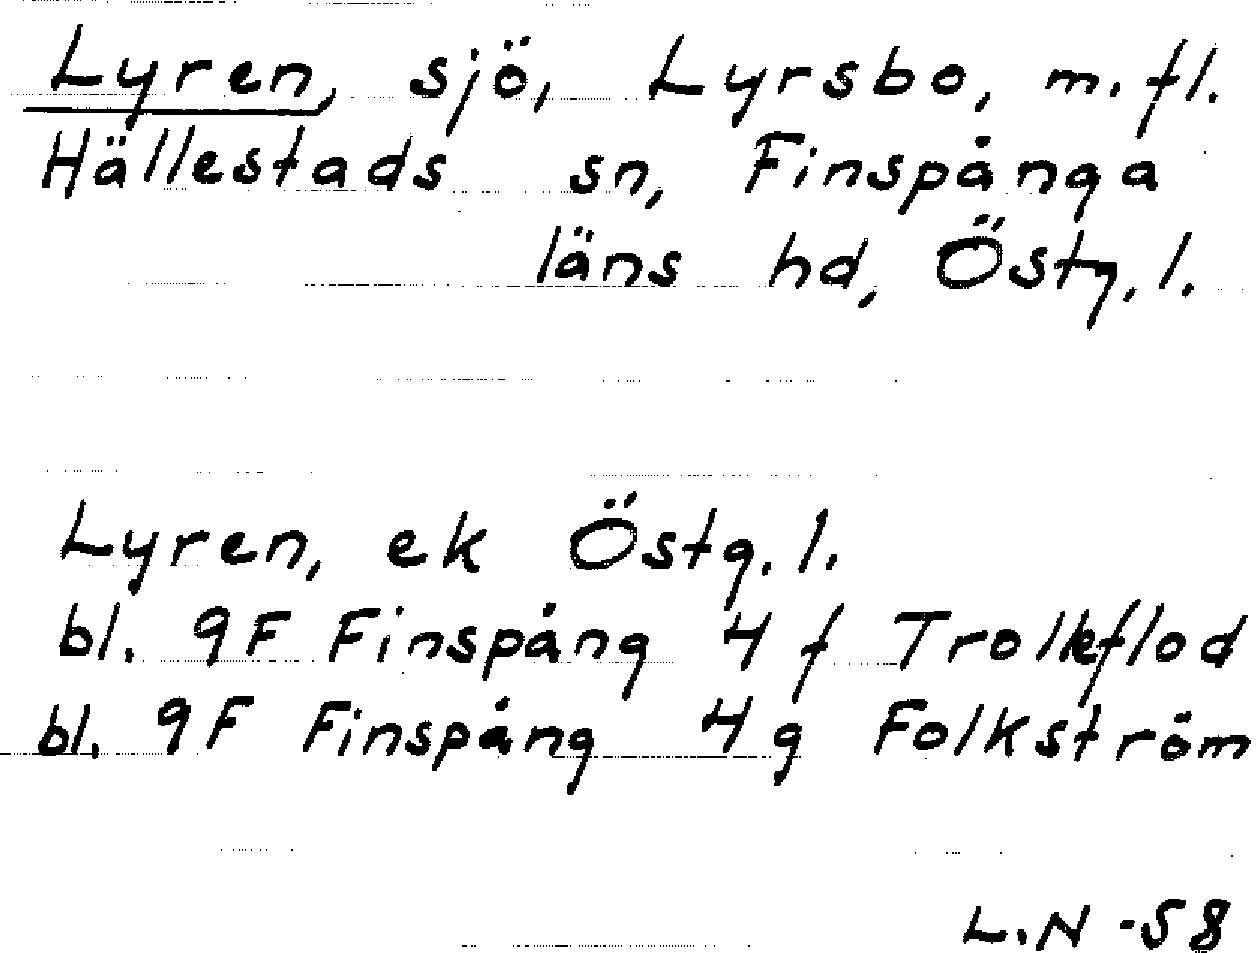 Lyren, sjö, Lyrsbo, m. fl.
Hällestads sn, Finspånga
läns hd, Östg. l.
Lyren, ek Östg. l.
bl. 9F Finspång 4 f Trolleflod
bl. 9F Finspång 4 g Folkström
L. N -58